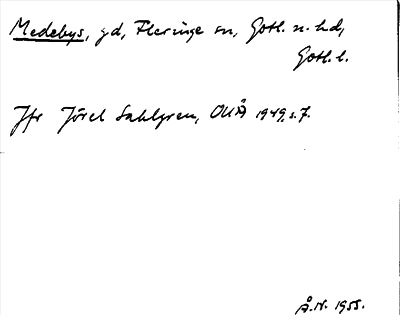 Medebys, gd, Fleringe sn, Gotl. n. hd,
Gotl. l.
Jfr Jöran Sahlgren, OUÅ 1949, s. 7.
Å.N. 1955.